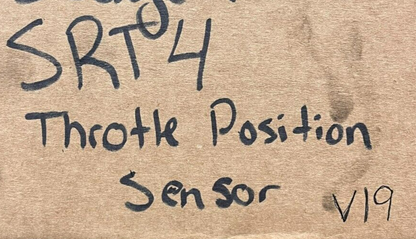 SRT 4
Throttle Position
Sensor
V19